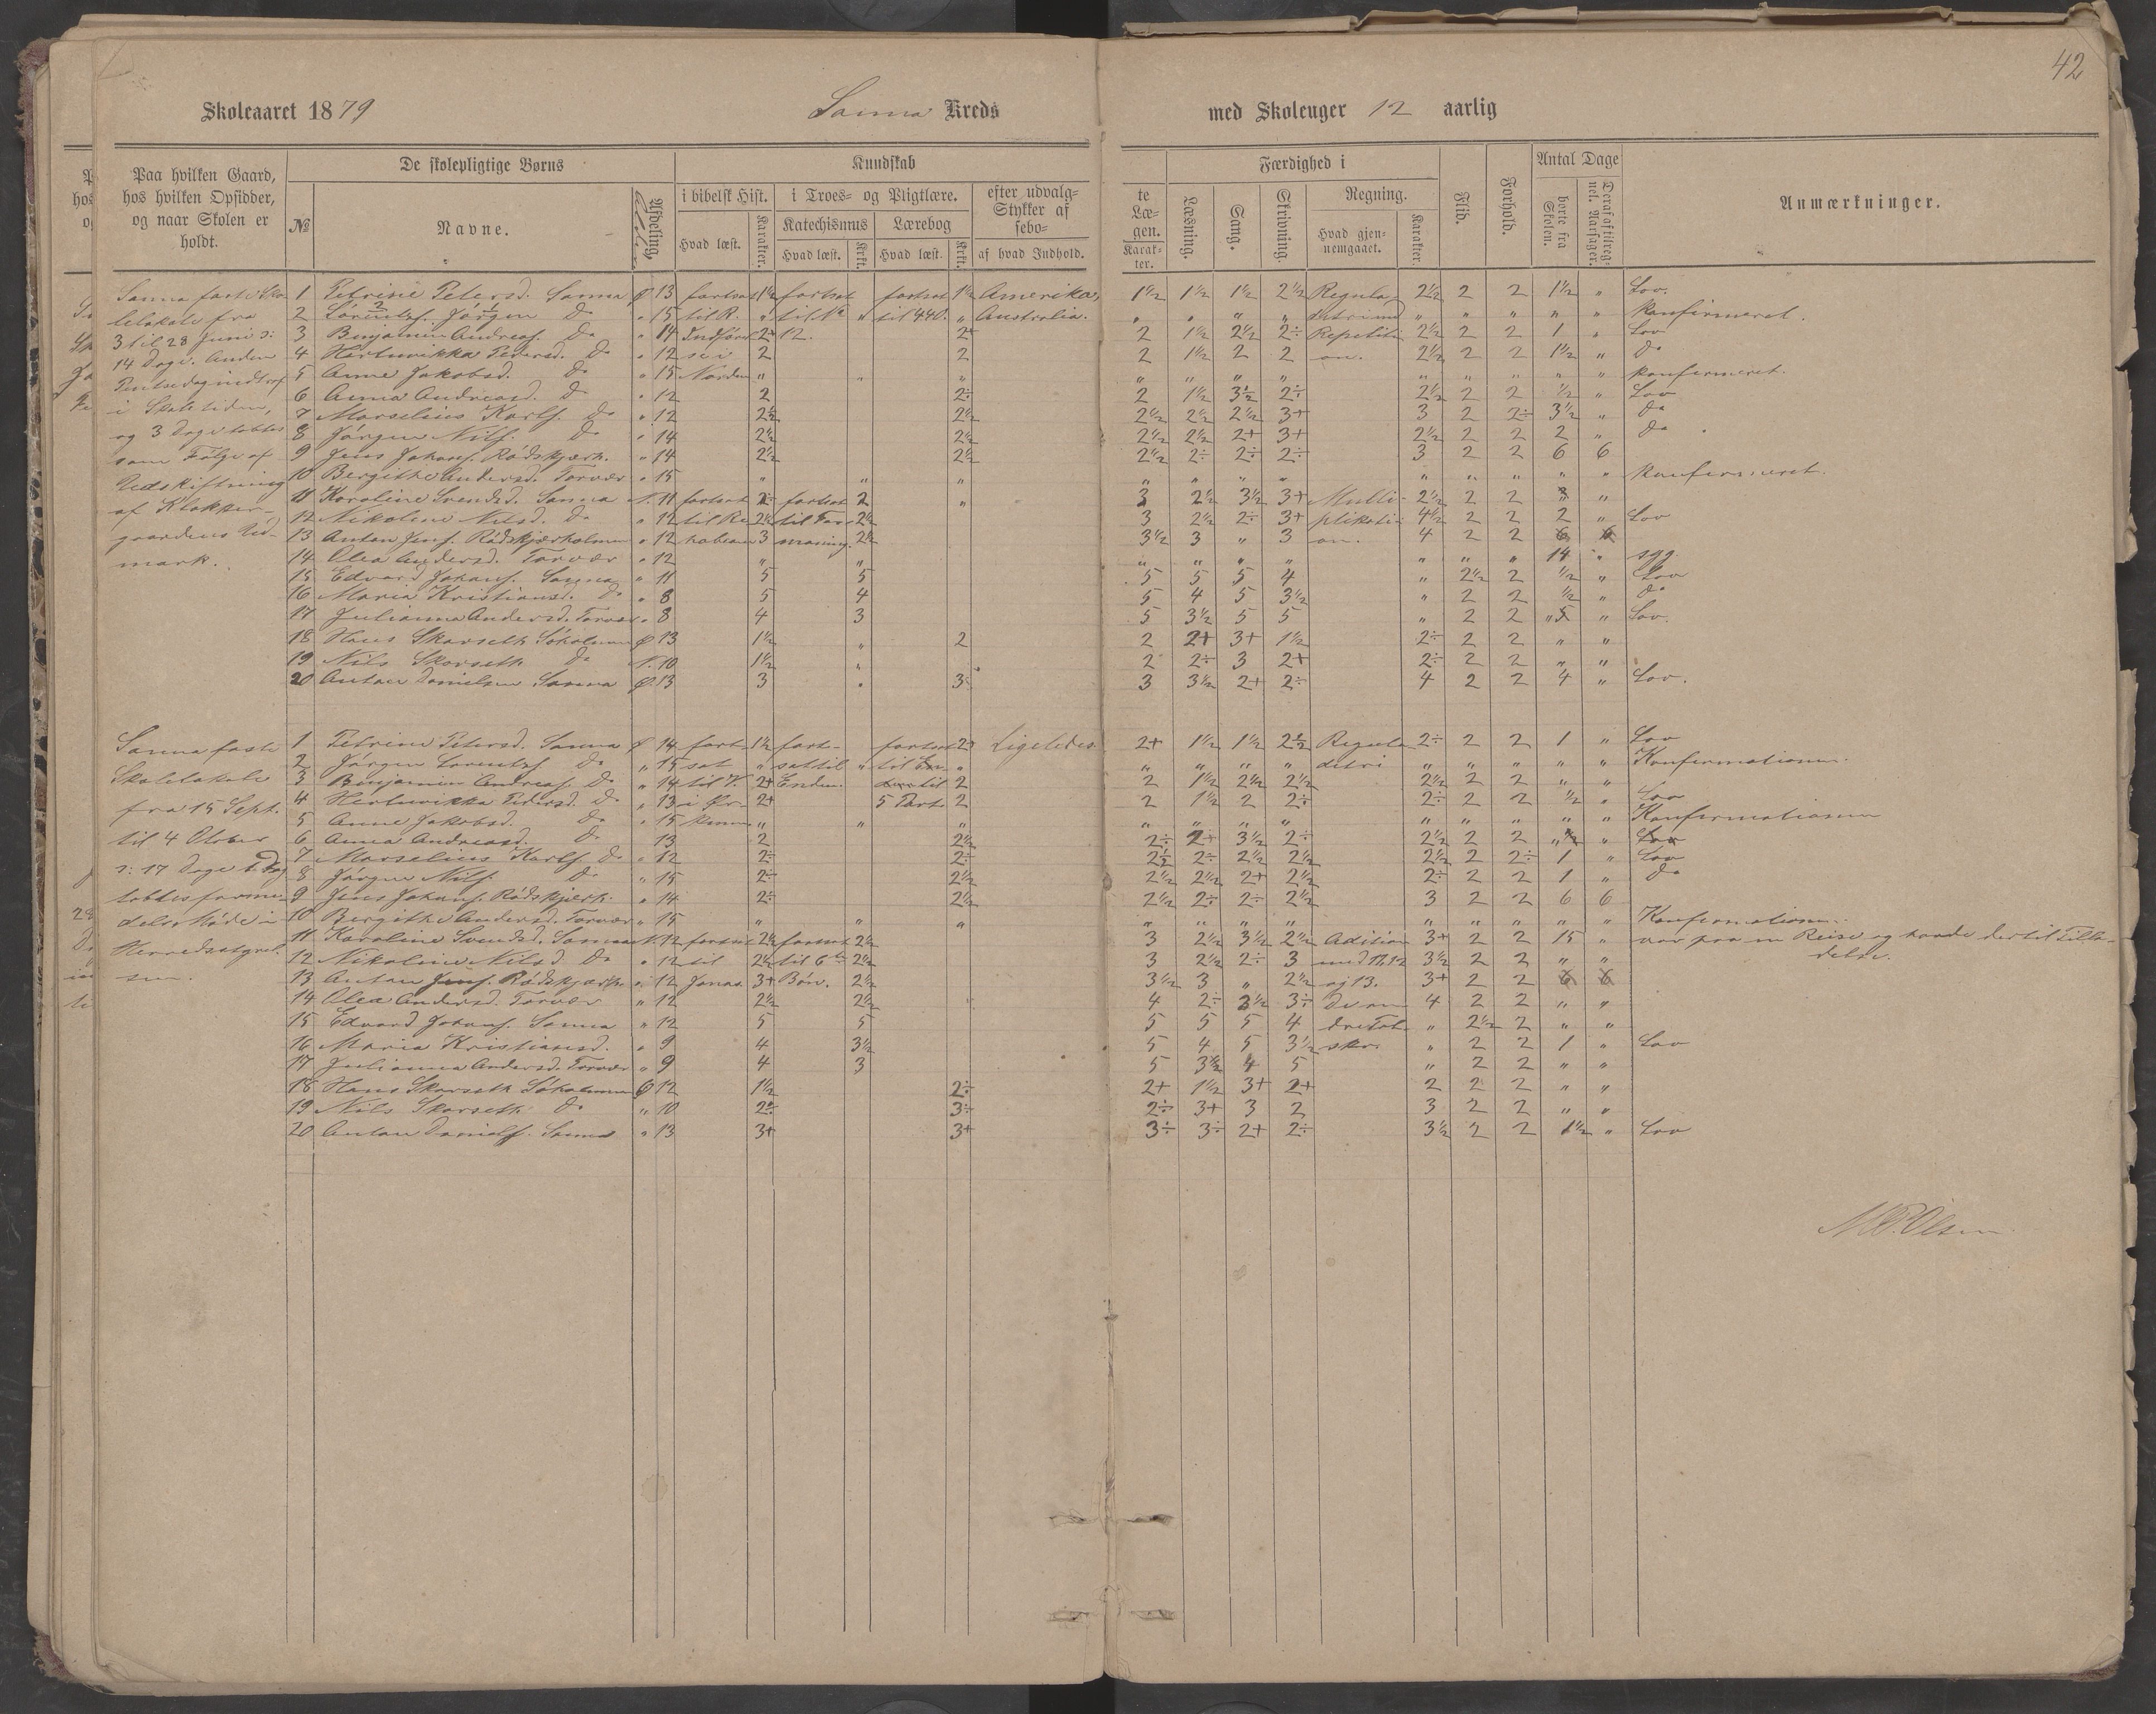 42
Skoleaaret 1879 Sanna Kreds med Skoleuger 12 aarlig
Paa hvilken Gaard, hos hvilken Opsidder, og naar Skolen er holdt.
De skolepligtige Børns
№ Navne. Afdeling.
Kundskab
i bibelsk Hist. i Troes- og Pligtlære. efter udvalg- te
Katechismus Lærebog Stykker af Læ-
Hvad læst. Karakter. Hvad læst. Krkt. Hvad læst. Krkt. sebo- gen.
af hvad Indhold. Karak- ter.
Færdighed i
Læsning. Sang. Skrivning. Regning.
Hvad gjen- nemgaaet. Karakter.
Flid. Forhold.
Antal Dage
borte fra Skolen. Deraf af tilreg- nel. Aarsager.
Anmærkninger.
Sanna faste Sko-
lelokale fra
3 til 28 Juni
14 Dage. Anden
Pintsedag indtraf
i Skoletiden,
og 3 Dage tabtes
som Følge af
Udskiftning
af Klokker-
gaardens Ud-
mark.
1 Petrine Petersd. Sanna 13 fortsat 1½ fortsat fortsat 1½ Amerika, 1½ 1½ 1½ 2½ Regula 2½ 2 2 1½ „ Lov.
2 Lorentzs. Jørgen Do „ 15 til R. „ til „ til 440. „ Australia. „ „ „ „ „ „ „ „ „ konfirmeret.
3 Benjamin Andreas. Do „ 14 Indført 2+ 12. 2+ 2 1½ 2½ 2÷ Repetiti 2½ 2 2 1 „ Lov
4 Hartvikka Pedersd. Do „ 12 2 2 2 1½ 2 2 on. 2½ 2 2 1½ „ Do
5 Anne Jakobsd. Do „ 15 Norden „ „ „ „ „ „ „ „ „ „ „ „ konfirmeret.
6 Anna Andreasd. Do „ 12 2 2÷ 2 1½ 3½ 2÷ 2½ 2 2 ½ „ Lov
7 Marselius Karls. Do „ 12 2½ 2½ 2½ 2½ 2½ 3+ 3 2 2÷ 3½ „ Do
8 Jørgen Nils. Do „ 14 2½ 2½ 2½ 2½ 2+ 3+ 2½ 2 2 2 „ Do
9 Jens Johans. Rødskjærh. „ 14 2½ 2½ 2½ 2÷ 2÷ 2÷ 3 2 2 6 6
10 Bergithe Andersd. Torvær „ 15 „ „ „ „ „ „ „ „ „ „ „ „ konfirmeret.
11 Karoline Svendsd. Sanna N. 11 fortsat 2÷ fortsat 2 „ 3 2½ 3½ 3+ Multi- 2½ 2 2 „
12 Nikoline Nilsd. Do „ 12 til Re 2½ til For- 2½ 3 2½ 2÷ 3+ plikati- 4½ 2 2 2 „ Lov
13 Anton Jens. Rødskjærholmen „ 12 habeam 3 maning. 2½ 3½ 3 „ 3 on. 4 2 2 6 6
14 Olea Andersd. Torvær „ 12 „ „ „ „ „ „ „ „ „ 14 „ syg.
15 Edvard Johans. Sanna „ 11 5 5 5 5 5 4 „ 2½ 2 ½ „ Lov
16 Maria Kristiansd. Do „ 8 5 4 5 4 5 3½ „ 2 2 ½ „ Do
17 Julianna Andersd. Torvær „ 8 4 3 5 3½ 5 5 „ 2 2 5 „ Lov.
18 Hans Skarseth Søholmen 13 1½ „ 2 2 2+ 3+ 1½ 2÷ 2 2 „ „
19 Nils Skarseth Do N. 10 1½ „ 2 2÷ 3 2+ 2÷ 2 2 „ „
20 Anton Danielsen Sanna 13 3 „ 3 3 3½ 2+ 2÷ 4 2 2 4 „ Lov.
Sanna faste
Skolelokale
fra 15 Sept.
til 4 Otober
17 Dage 1 Dag
tabtes forme-
delst Møde i
Herredsstyrel-
sen.
1 Petrine Petersd. Sanna 14 fort- 1½ fort- fortsat 2÷ Ligeledes. 2+ 1½ 1½ 2½ Regula 2÷ 2 2 1 „ Lov
2 Jørgen Lorentzs. Do „ 15 sat „ sat til „ til „ „ „ „ „ detri „ „ „ „ „ Konfirmationen.
3 Benjamin Andreas. Do „ 14 til V. 2+ Enden. til 2 2 1½ 2½ 2½ 2½ 2 2 „ „
4 Hertvikka Pedersd. Do „ 13 i Ør- 2+ 5 Part. 2 2 1½ 2 2÷ 2÷ 2 2 ½ „ Lov
5 Anne Jakobsd. Do „ 15 kenen „ „ „ „ „ „ „ „ „ „ „ „ Konfirmationen
6 Anna Andreasd. Do 13 2 2½ 2÷ 2+ 3½ 2÷ 2½ 2 2 „ „
7 Marselius Karls. Do „ 12 2÷ 2÷ 2½ 2÷ 2½ 2½ 2½ 2 2÷ 1 „ Lov
8 Jørgen Nils. Do „ 15 2÷ 2½ 2½ 2½ 2+ 2½ 2÷ 2 2 1 „ Do
9 Jens Johans. Rødskjærh. „ 14 2÷ 2½ 2½ 2÷ 2÷ 2½ 3 2 2 6 6
10 Bergithe Andersd. Torvær „ 15 „ „ „ „ „ „ „ „ „ „ „ „ Konfirmationen.
11 Karoline Svendsd. Sanna N. 12 fortsat 2½ fortsat 2½ 3 2½ 3½ 2½ Adition 3+ 2 2 15 „ var paa en Reise og havde dertil Tilla-
12 Nikoline Nilsd. Do „ 12 til 2½ til 6te 2½ 3 2½ 2÷ 3 med 11,12 3½ 2 2 „ „ delse.
13 Anton Jens. Rødskjærh. „ 12 Jonas 3+ Bøn. 2½ 3½ 3 „ 2½ og 13. 3+ 2 2 6 6
14 Olea Andersd. Torvær „ 12 2½ 2½ 4 2÷ 3½ 3÷ De an 4 2 2 „ „
15 Edvard Johans. Sanna „ 12 5 5 5 5 5 4 dre Tol- „ 2½ 2 „ „
16 Maria Kristiansd. „ 9 4 3½ 5 4 5 3½ sker. „ 2 2 1 „ Lov
17 Julianna Andersd. Torvær „ 9 4 3 5 3½ 4 5 „ 2 2 „ „
18 Hans Skarseth Søholmen 12 1½ 2÷ 2+ 1½ 3+ 2+ 2 2 2 „ „
19 Nils Skarseth Do „ 10 2÷ 3÷ 2÷ 3+ 3 2 3 2 2 „ „
20 Anton Daniels. Sanna „ 13 3+ 3+ 3÷ 3÷ 2+ 2÷ 3½ 2 2 1½ „ Lov
Olsen